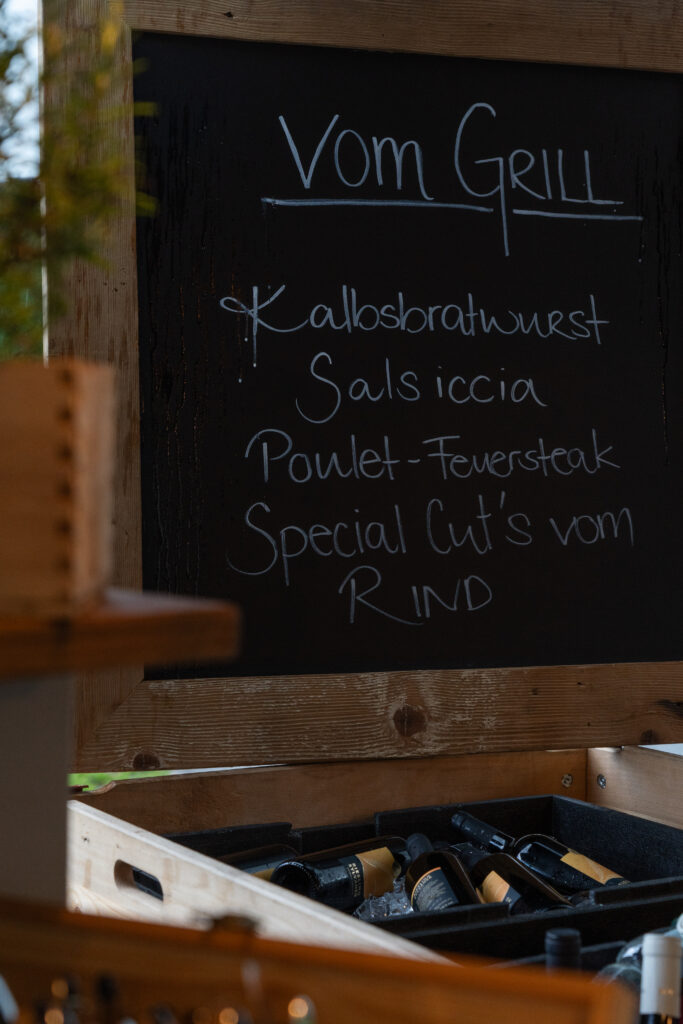 Vom GRILL
Kalbsbratwurst
Salsiccia
Poulet-Feuersteak
Special Cut's vom
RIND